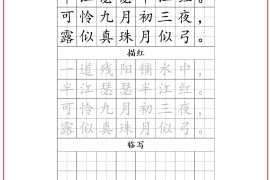 半江瑟瑟半江红。
可怜九月初三夜，
露似真珠月似弓。
描红
一道残阳铺水中，
半江瑟瑟半江红。
可怜九月初三夜，
露似真珠月似弓。
临写